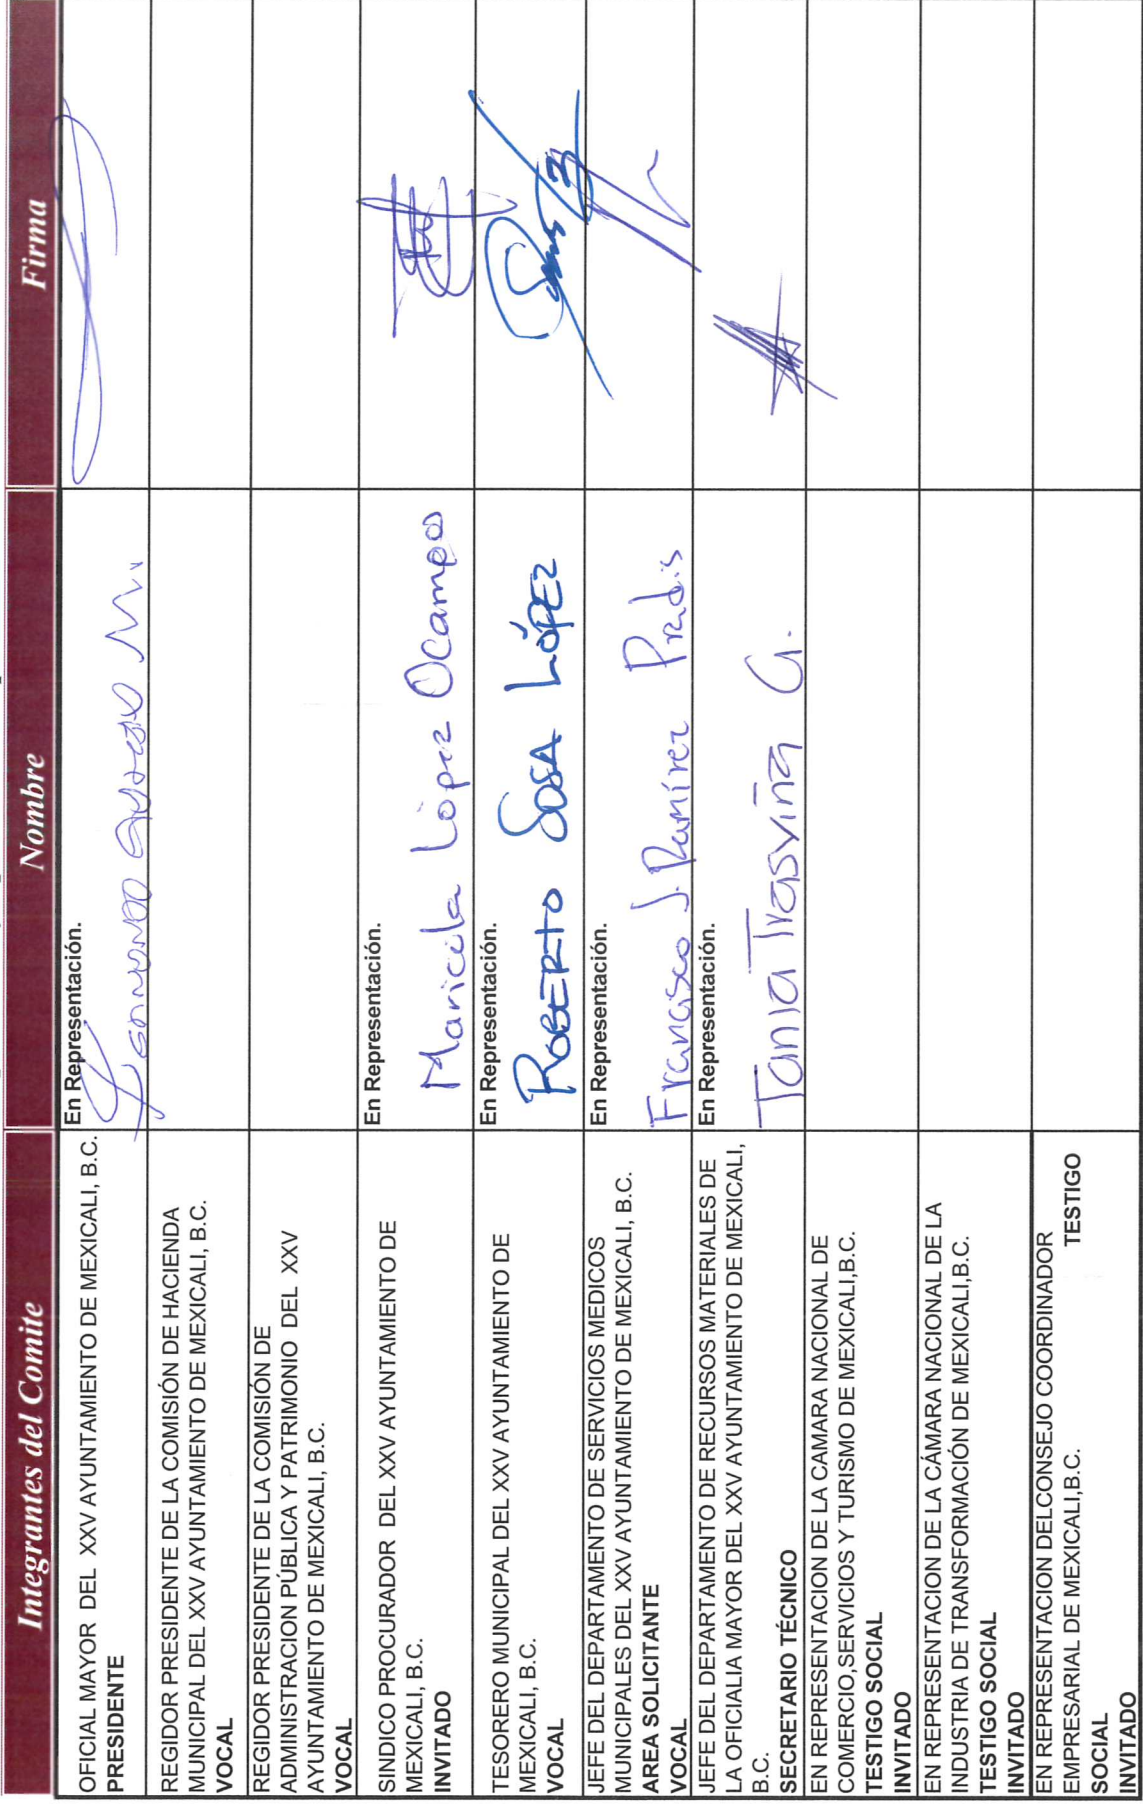 Integrantes del Comite Nombre Firma
OFICIAL MAYOR DEL XXV AYUNTAMIENTO DE MEXICALI, B.C.
PRESIDENTE
En Representación.
REGIDOR PRESIDENTE DE LA COMISIÓN DE HACIENDA
MUNICIPAL DEL XXV AYUNTAMIENTO DE MEXICALI, B.C.
VOCAL
REGIDOR PRESIDENTE DE LA COMISIÓN DE
ADMINISTRACION PÚBLICA Y PATRIMONIO DEL XXV
AYUNTAMIENTO DE MEXICALI, B.C.
VOCAL
SINDICO PROCURADOR DEL XXV AYUNTAMIENTO DE
MEXICALI, B.C.
INVITADO
En Representación.
Maricela López Ocampo
TESORERO MUNICIPAL DEL XXV AYUNTAMIENTO DE
MEXICALI, B.C.
VOCAL
En Representación.
ROBERTO SOSA LÓPEZ
JEFE DEL DEPARTAMENTO DE SERVICIOS MEDICOS
MUNICIPALES DEL XXV AYUNTAMIENTO DE MEXICALI, B.C.
AREA SOLICITANTE
VOCAL
En Representación.
Francisco J. Ramírez
JEFE DEL DEPARTAMENTO DE RECURSOS MATERIALES DE
LA OFICIALIA MAYOR DEL XXV AYUNTAMIENTO DE MEXICALI,
B.C.
SECRETARIO TÉCNICO
En Representación.
Tania Trasviña G.
EN REPRESENTACION DE LA CAMARA NACIONAL DE
COMERCIO,SERVICIOS Y TURISMO DE MEXICALI,B.C.
TESTIGO SOCIAL
INVITADO
EN REPRESENTACION DE LA CÁMARA NACIONAL DE LA
INDUSTRIA DE TRANSFORMACIÓN DE MEXICALI,B.C.
TESTIGO SOCIAL
INVITADO
EN REPRESENTACION DELCONSEJO COORDINADOR
EMPRESARIAL DE MEXICALI,B.C. TESTIGO
SOCIAL
INVITADO